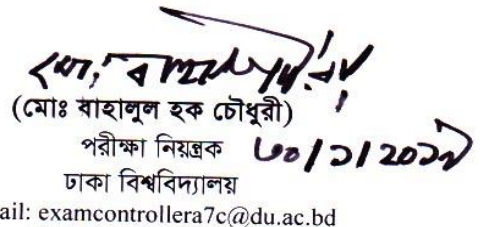 (মোঃ বাহালুল হক চৌধুরী)
পরীক্ষা নিয়ন্ত্রক
ঢাকা বিশ্ববিদ্যালয়
ail: examcontrollera7c@du.ac.bd